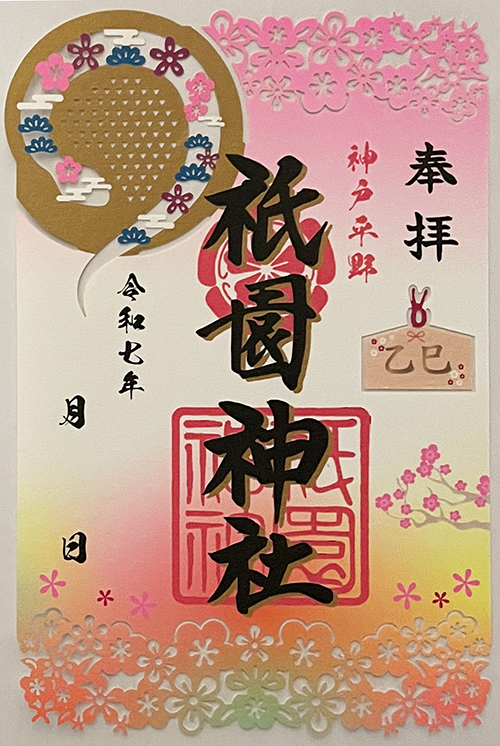 奉拝
神戸平野
乙巳
祇園神社
祇園神社
令和七年
月
日